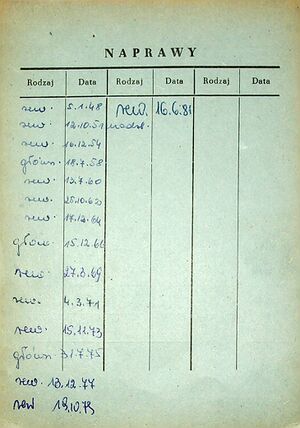 NAPRAWY
Rodzaj Data Rodzaj Data Rodzaj Data
rew. 5.1.48 rew. 16.6.81
rew. 12.10.51
rew. 16.12.54
główn. 18.7.58
rew. 13.7.60
rew. 25.10.62
rew. 17.12.64
główn. 15.12.66
rew. 27.3.69
rew. 4.3.71
rew. 15.11.73
główn 31.7.75
rew. 13.12.77
rew 19.10.79